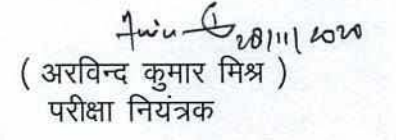 28/11/2020
( अरविन्द कुमार मिश्र )
परीक्षा नियंत्रक